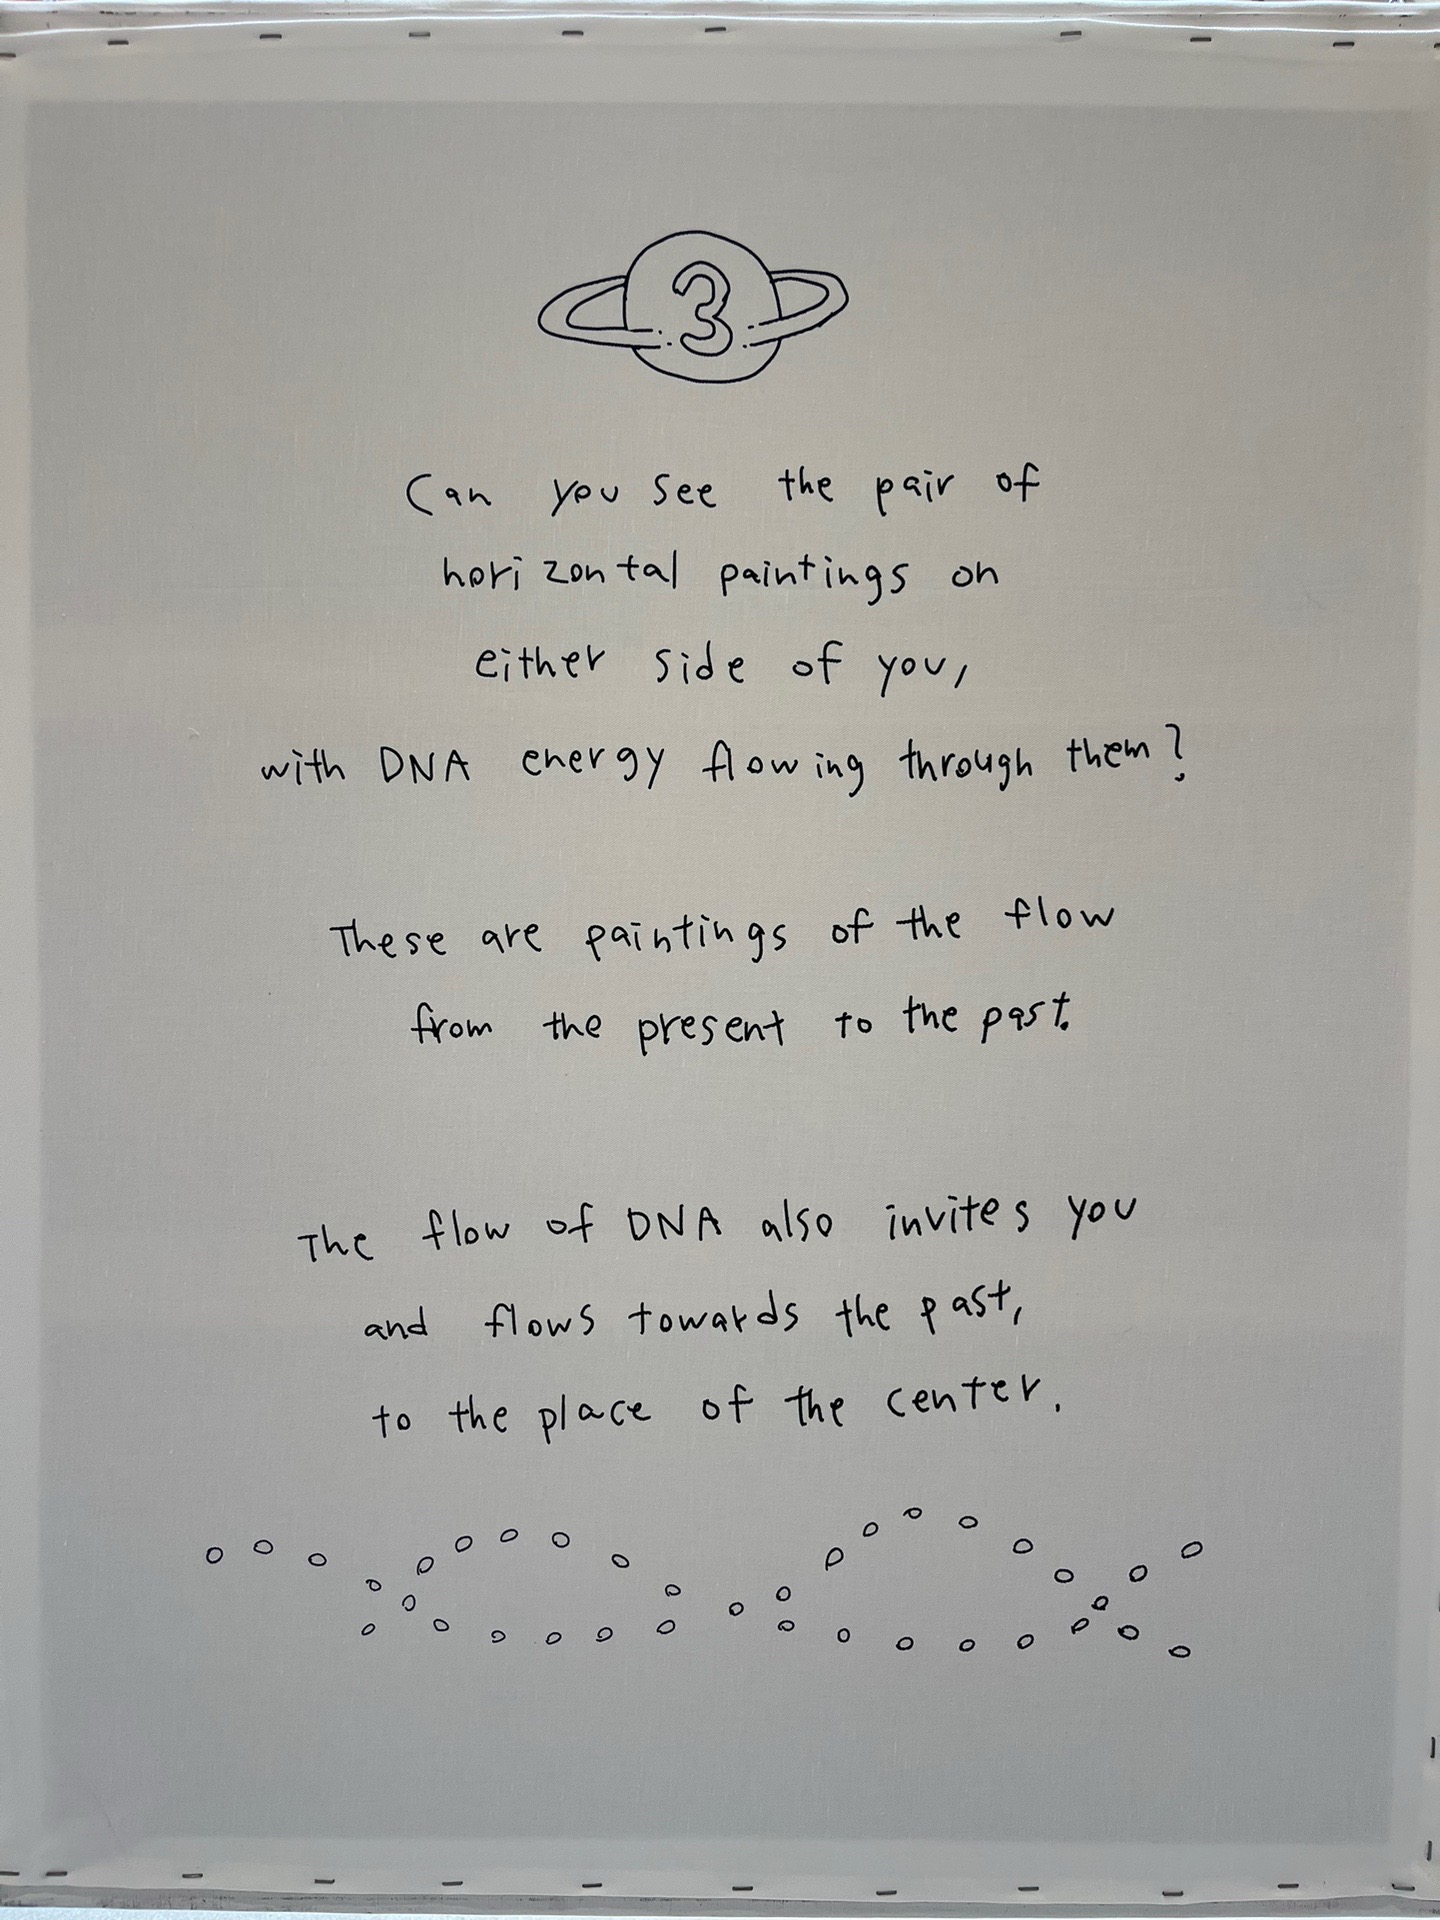 3
Can you see the pair of
horizontal paintings on
either side of you,
with DNA energy flowing through them?
These are paintings of the flow
from the present to the past.
The flow of DNA also invites you
and flows towards the past,
to the place of the center.